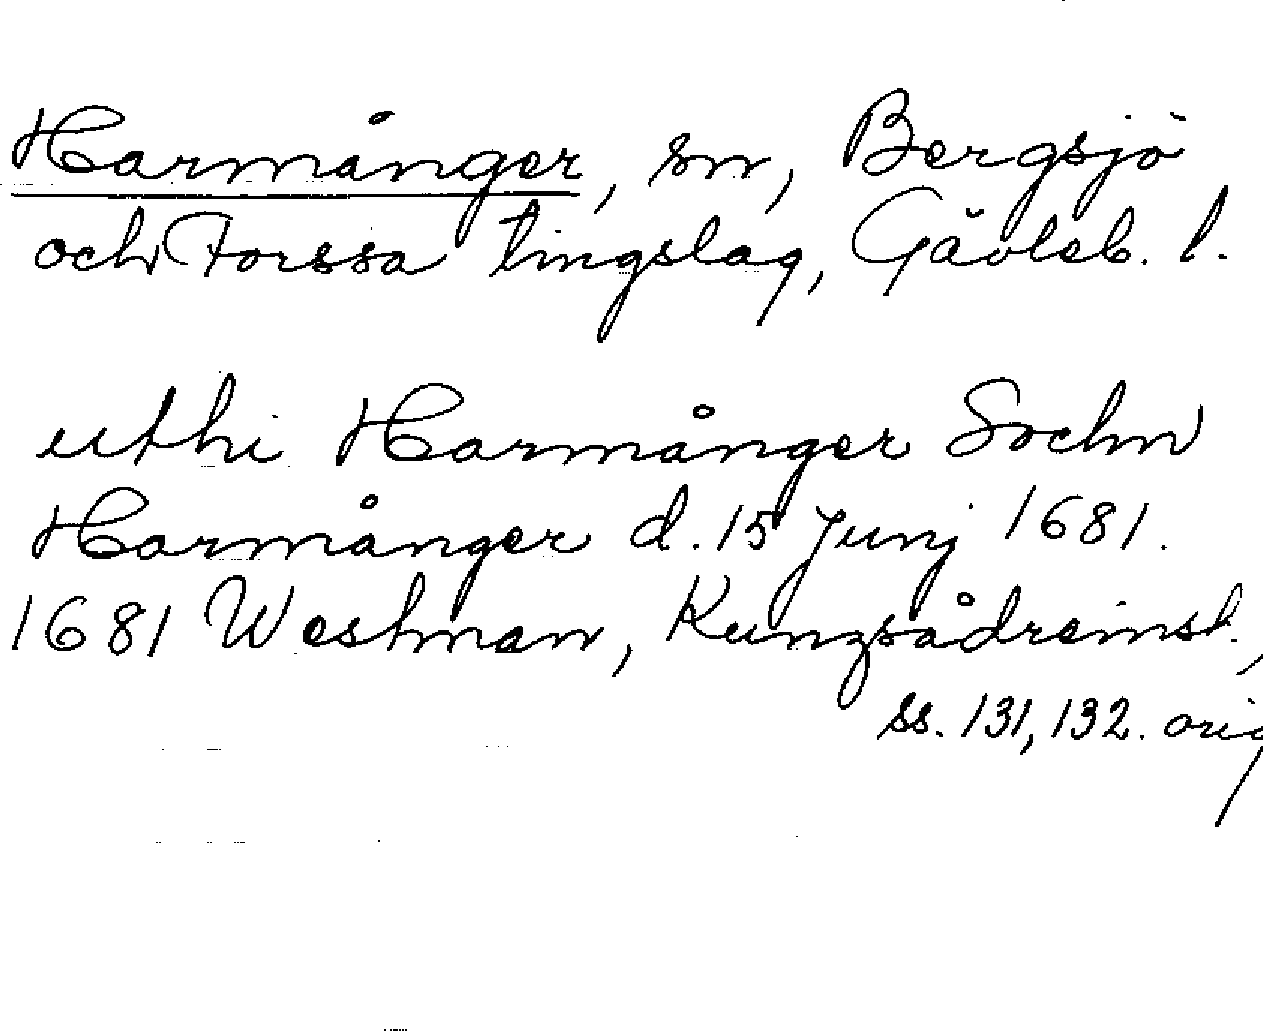 Harmånger, sn, Bergsjö
och Forssa tingslag, Gävleb. l.
uthi Harmånger Sochn
Harmånger d. 15 Junj 1681.
1681 Westman, Kungsådreinst.,
ss. 131, 132. orig